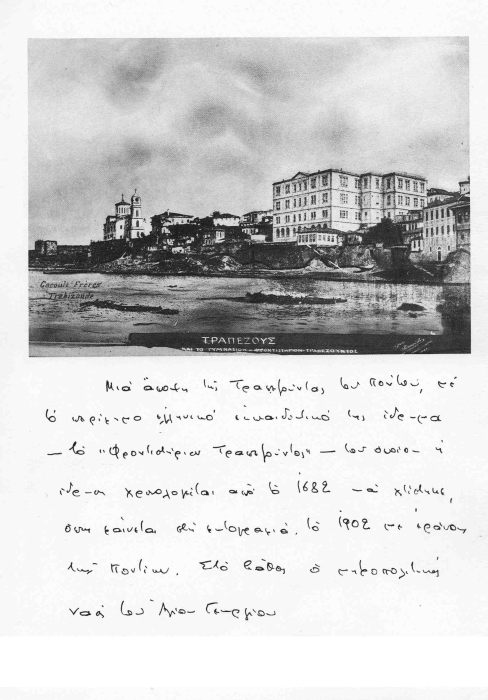 Cacouli Frères
Trebizonde
ΤΡΑΠΕΖΟΥΣ
ΚΑΙ ΤΟ ΓΥΜΝΑΣΙΟΝ - ΦΡΟΝΤΙΣΤΗΡΙΟΝ ΤΡΑΠΕΖΟΥΝΤΟΣ
Μιά άποψη της Τραπεζούντας του Πόντου, μέ
τό περίφημο ελληνικό εκπαιδευτικό της ίδρυμα
— τό "Φροντιστήριον Τραπεζούντος" — του οποίου η
ίδρυση χρονολογείται από τό 1682 και χτίστηκε,
όπως φαίνεται στή φωτογραφία, τό 1902 με έρανο
των Ποντίων. Στό βάθος ο μητροπολιτικός
ναός του Αγίου Γρηγορίου